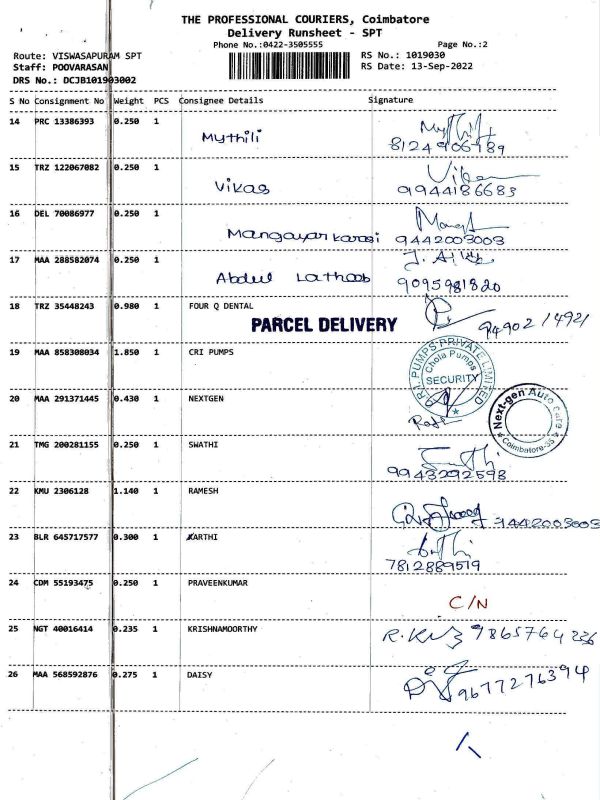 THE PROFESSIONAL COURIERS, Coimbatore
Delivery Runsheet - SPT
Phone No.:0422-3505555 Page No.:2
Route: VISWASAPURAM SPT RS No.: 1019030
Staff: POOVARASAN RS Date: 13-Sep-2022
DRS No.: DCJB101903002
S No Consignment No Weight PCS Consignee Details Signature
14 PRC 13386393 0.250 1
Mythili 8124906789
15 TRZ 122067082 0.250 1
Vikas 9944186683
16 DEL 70086977 0.250 1
Mangayarkarasi 9442003003
17 MAA 288582074 0.250 1
Abdul Lathoob 9095981820
18 TRZ 35448243 0.980 1 FOUR Q DENTAL
PARCEL DELIVERY 9490214921
19 MAA 858308034 1.850 1 CRI PUMPS
PUMPS PRIVATE LIMITED
Chola Pumps
SECURITY
20 MAA 291371445 0.430 1 NEXTGEN
Next-gen Auto care
Coimbatore-35
21 TMG 200281155 0.250 1 SWATHI
9943292598
22 KMU 2306128 1.140 1 RAMESH
9442003003
23 BLR 645717577 0.300 1 KARTHI
7812889519
24 CDM 55193475 0.250 1 PRAVEENKUMAR
C/N
25 NGT 40016414 0.235 1 KRISHNAMOORTHY
9865764236
26 MAA 568592876 0.275 1 DAISY
9677276394